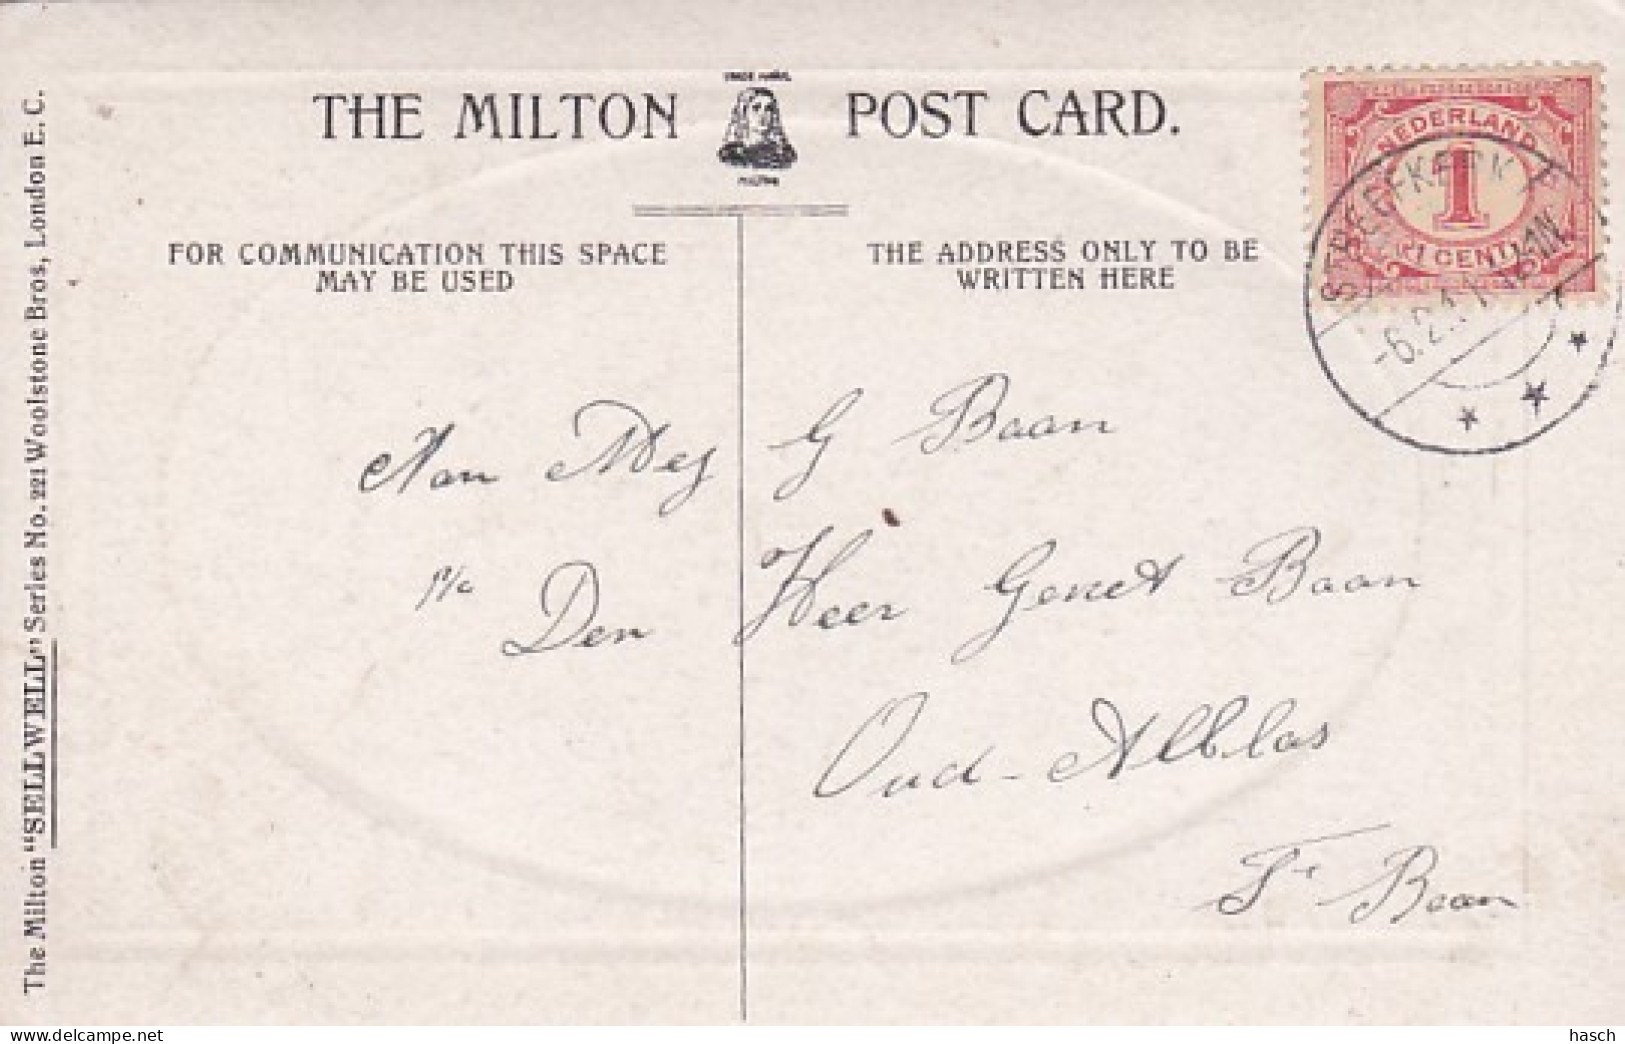 TRADE MARK.
THE MILTON POST CARD.
MILTON
FOR COMMUNICATION THIS SPACE
MAY BE USED
THE ADDRESS ONLY TO BE
WRITTEN HERE
NEDERLAND
1
1 CENT
STREEFKERK
-6.2.1
The Milton "SELLWELL" Series No. 221 Woolstone Bros, London E. C.
Aan Mej G Baan
p/a Den Heer Gerrit Baan
Oud-Alblas
Baan
www.delcampe.net
hasch